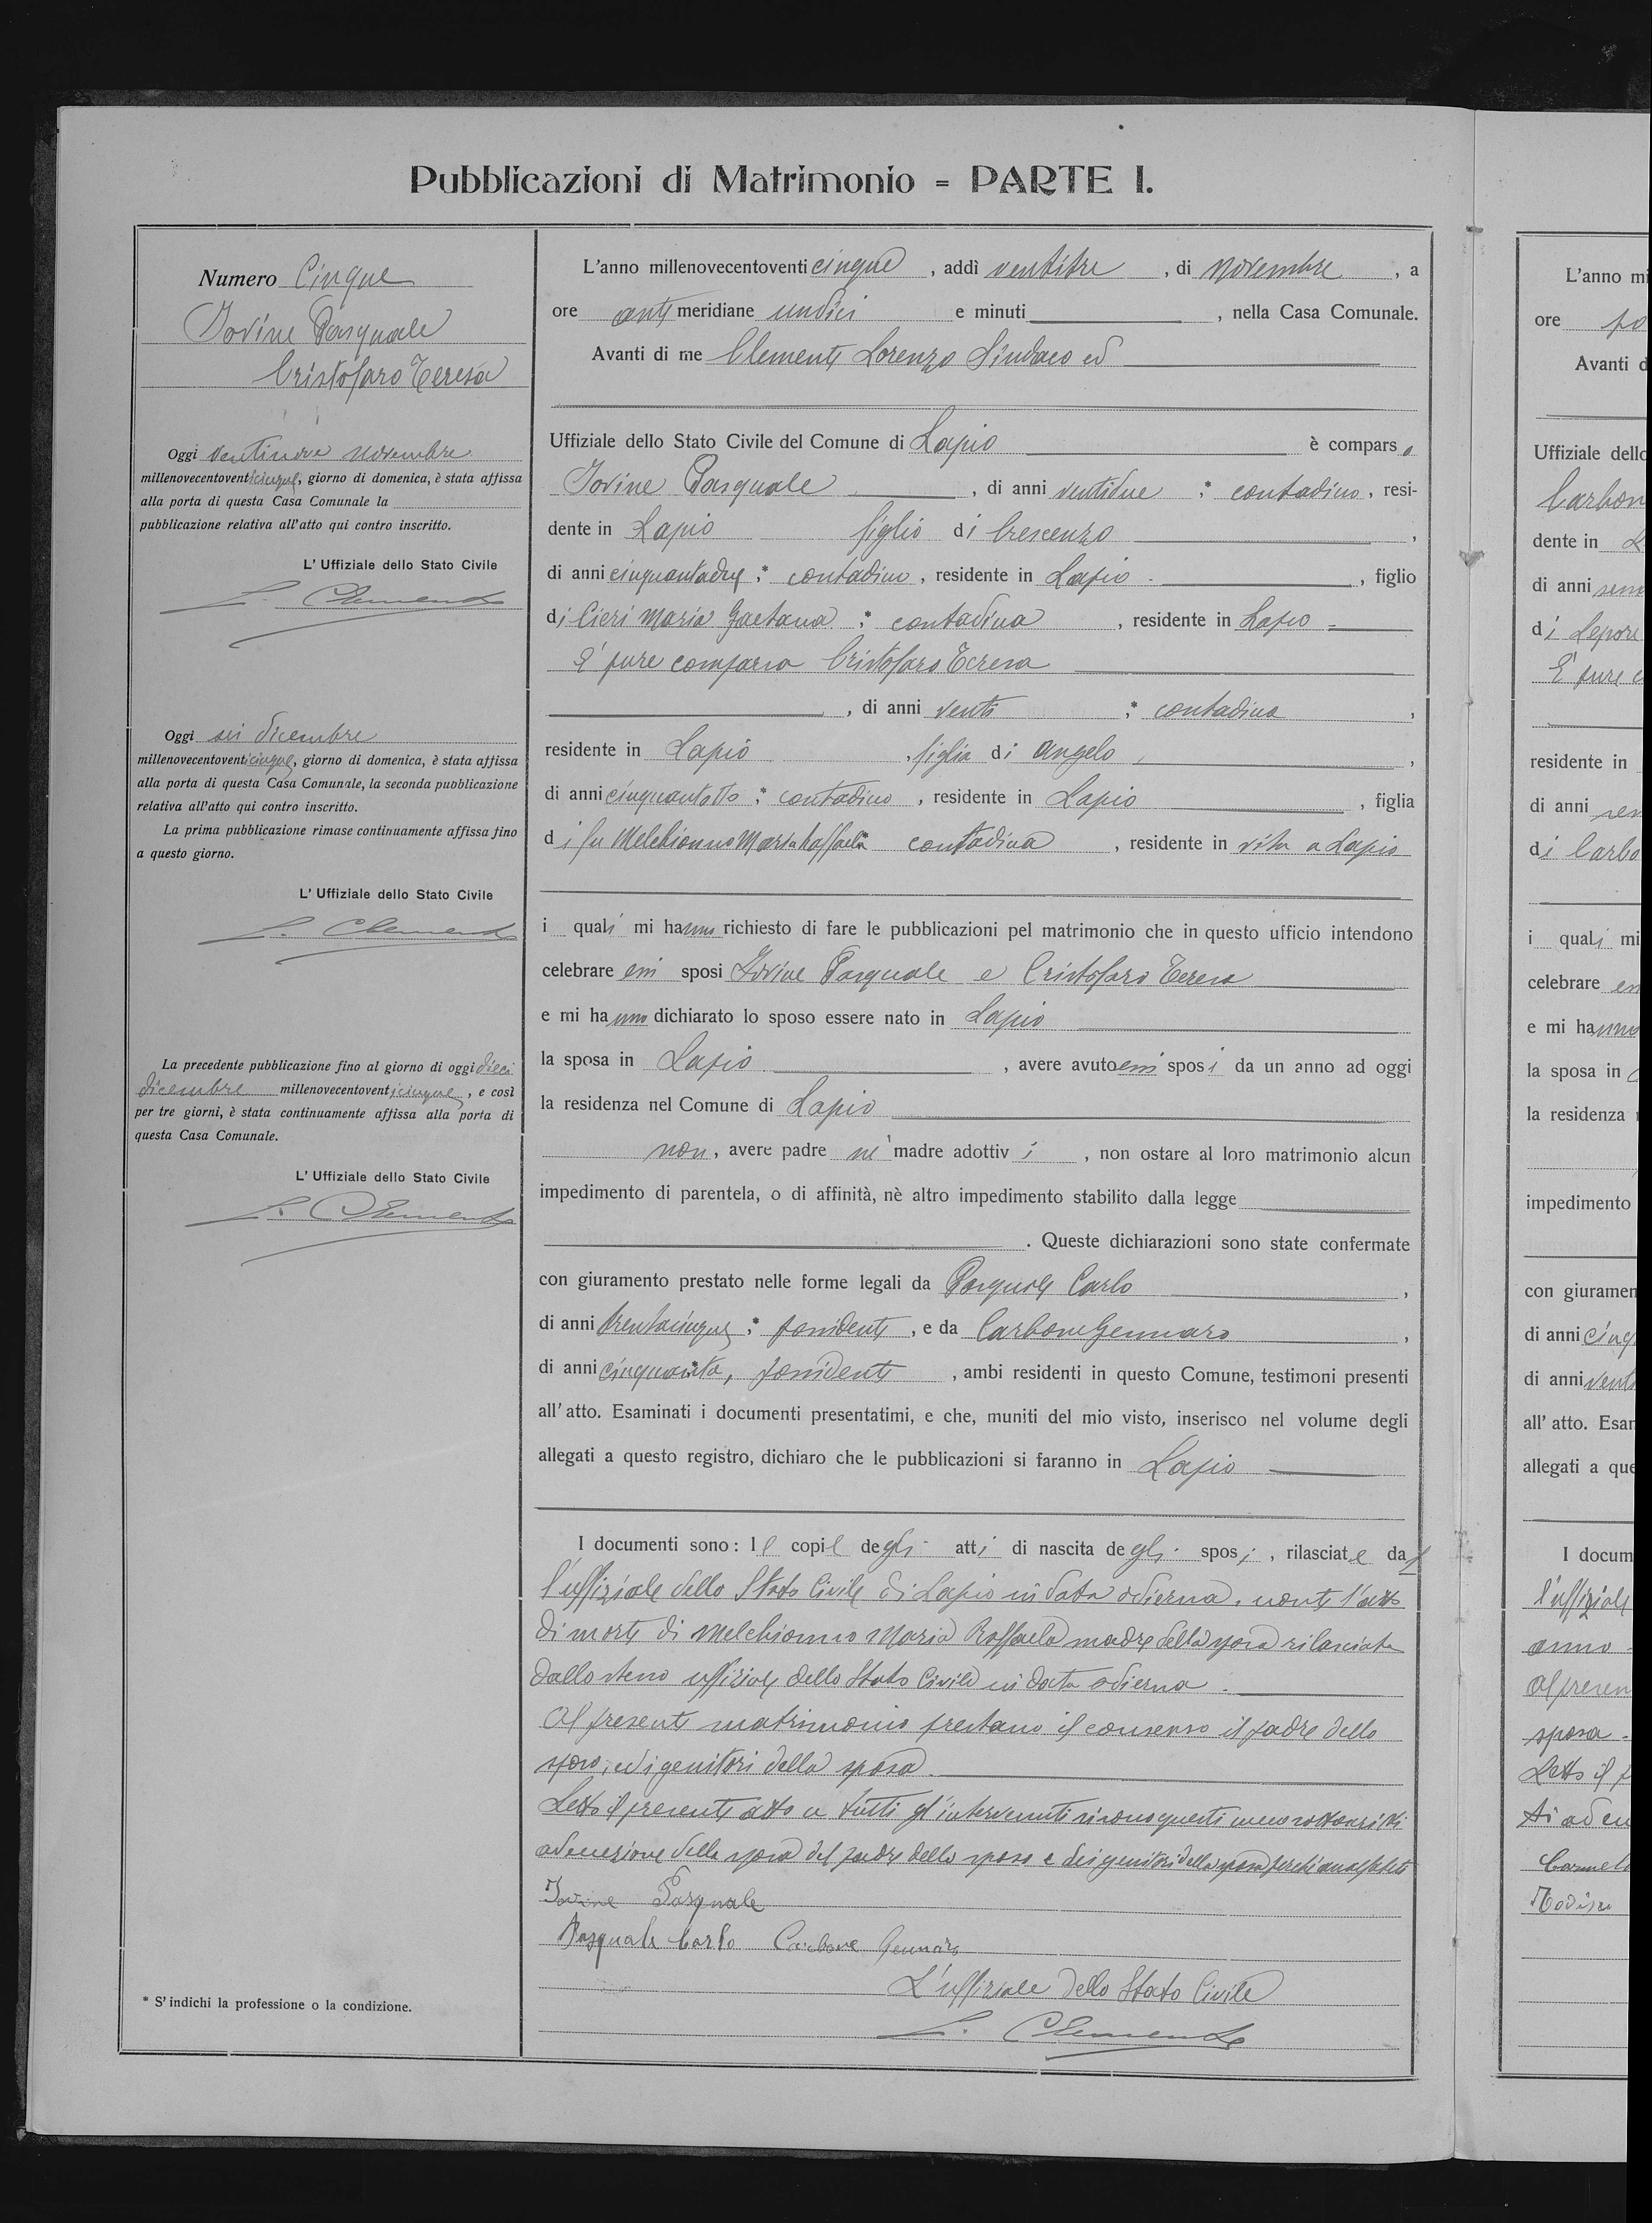 Pubblicazioni di Matrimonio = PARTE I.
Numero Cinque
Iovine Pasquale
Cristofaro Teresa
Oggi ventinove novembre
millenovecentoventicinque, giorno di domenica, è stata affissa
alla porta di questa Casa Comunale la
pubblicazione relativa all'atto qui contro inscritto.
L' Uffiziale dello Stato Civile
L. Clemente
Oggi sei dicembre
millenovecentoventicinque, giorno di domenica, è stata affissa
alla porta di questa Casa Comunale, la seconda pubblicazione
relativa all'atto qui contro inscritto.
La prima pubblicazione rimase continuamente affissa fino
a questo giorno.
L' Uffiziale dello Stato Civile
L. Clemente
La precedente pubblicazione fino al giorno di oggi dieci
dicembre millenovecentoventicinque, e così
per tre giorni, è stata continuamente affissa alla porta di
questa Casa Comunale.
L' Uffiziale dello Stato Civile
L. Clemente
* S'indichi la professione o la condizione.
L'anno millenovecentoventicinque, addì ventitre, di novembre, a
ore antimeridiane undici e minuti , nella Casa Comunale.
Avanti di me Clemente Lorenzo Sindaco ed
Uffiziale dello Stato Civile del Comune di Lapio è comparso
Iovine Pasquale , di anni ventidue * contadino, resi-
dente in Lapio figlio di Crescenzo ,
di anni cinquantadue * contadino, residente in Lapio , figlio
di Cieri Maria Gaetana * contadina , residente in Lapio
E' pure comparsa Cristofaro Teresa
, di anni venti * contadina ,
residente in Lapio , figlia di Angelo ,
di anni cinquantotto * contadino , residente in Lapio , figlia
di fu Melchionno Maria Raffaela contadina , residente in vita a Lapio
i quali mi hanno richiesto di fare le pubblicazioni pel matrimonio che in questo ufficio intendono
celebrare essi sposi Iovine Pasquale e Cristofaro Teresa
e mi hanno dichiarato lo sposo essere nato in Lapio
la sposa in Lapio , avere avuto essi sposi da un anno ad oggi
la residenza nel Comune di Lapio
non, avere padre nè madre adottivi , non ostare al loro matrimonio alcun
impedimento di parentela, o di affinità, nè altro impedimento stabilito dalla legge
. Queste dichiarazioni sono state confermate
con giuramento prestato nelle forme legali da Pasquale Carlo ,
di anni trentacinque * possidente , e da Carbone Gennaro ,
di anni cinquanta, * possidente , ambi residenti in questo Comune, testimoni presenti
all'atto. Esaminati i documenti presentatimi, e che, muniti del mio visto, inserisco nel volume degli
allegati a questo registro, dichiaro che le pubblicazioni si faranno in Lapio
I documenti sono: le copie degli atti di nascita degli sposi, rilasciate dal
l'uffiziale dello Stato Civile di Lapio in data odierna, l'atto
di morte di Melchionno Maria Raffaela madre della sposa rilasciata
dallo stesso uffiziale dello Stato Civile in data odierna.
Al presente matrimonio prestano il consenso il padre dello
sposo, ed i genitori della sposa.
Letto il presente atto a tutti gl'intervenuti si sono questi meco sottoscritti
ad eccezione della sposa del padre dello sposo e dei genitori della sposa perchè analfabeti
Iovine Pasquale
Pasquale Carlo Carbone Gennaro
L'uffiziale dello Stato Civile
L. Clemente
L'anno mi
ore po
Avanti d
Uffiziale dello
Carbon
dente in L
di anni
di Lepore
E' pure c
residente in
di anni
di Carbo
i quali mi
celebrare
e mi hanno
la sposa in
la residenza
impedimento
con giuramen
di anni cinq
di anni vent
all' atto. Esan
allegati a que
I docum
l'uffiziale
anno
Al presen
sposa
Letto il p
ti ad ecc
Carmelo